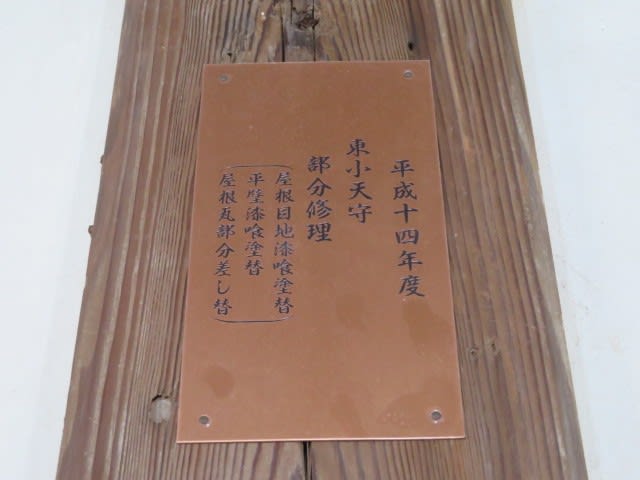 平成十四年度
東小天守
部分修理
屋根目地漆喰塗替
平壁漆喰塗替
屋根瓦部分差し替